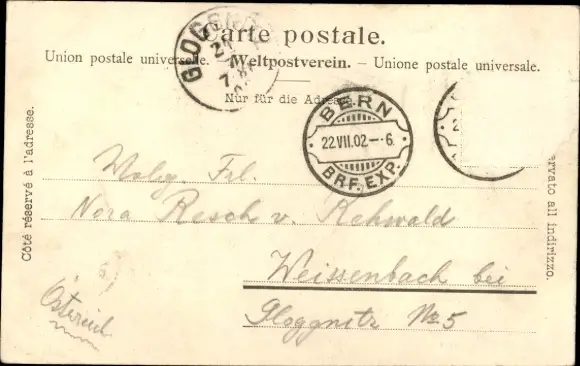 Carte postale.
Union postale universelle. - Weltpostverein. - Unione postale universale.
Nur für die Adresse.
GLOGGNITZ
BERN
22.VII.02 - 6.
BRF. EXP.
Côté réservé à l'adresse.
ervato all indirizzo.
Wolg. Frl.
Nora Resch v. Rehwald
Weissenbach bei
Gloggnitz No 5
Österreich